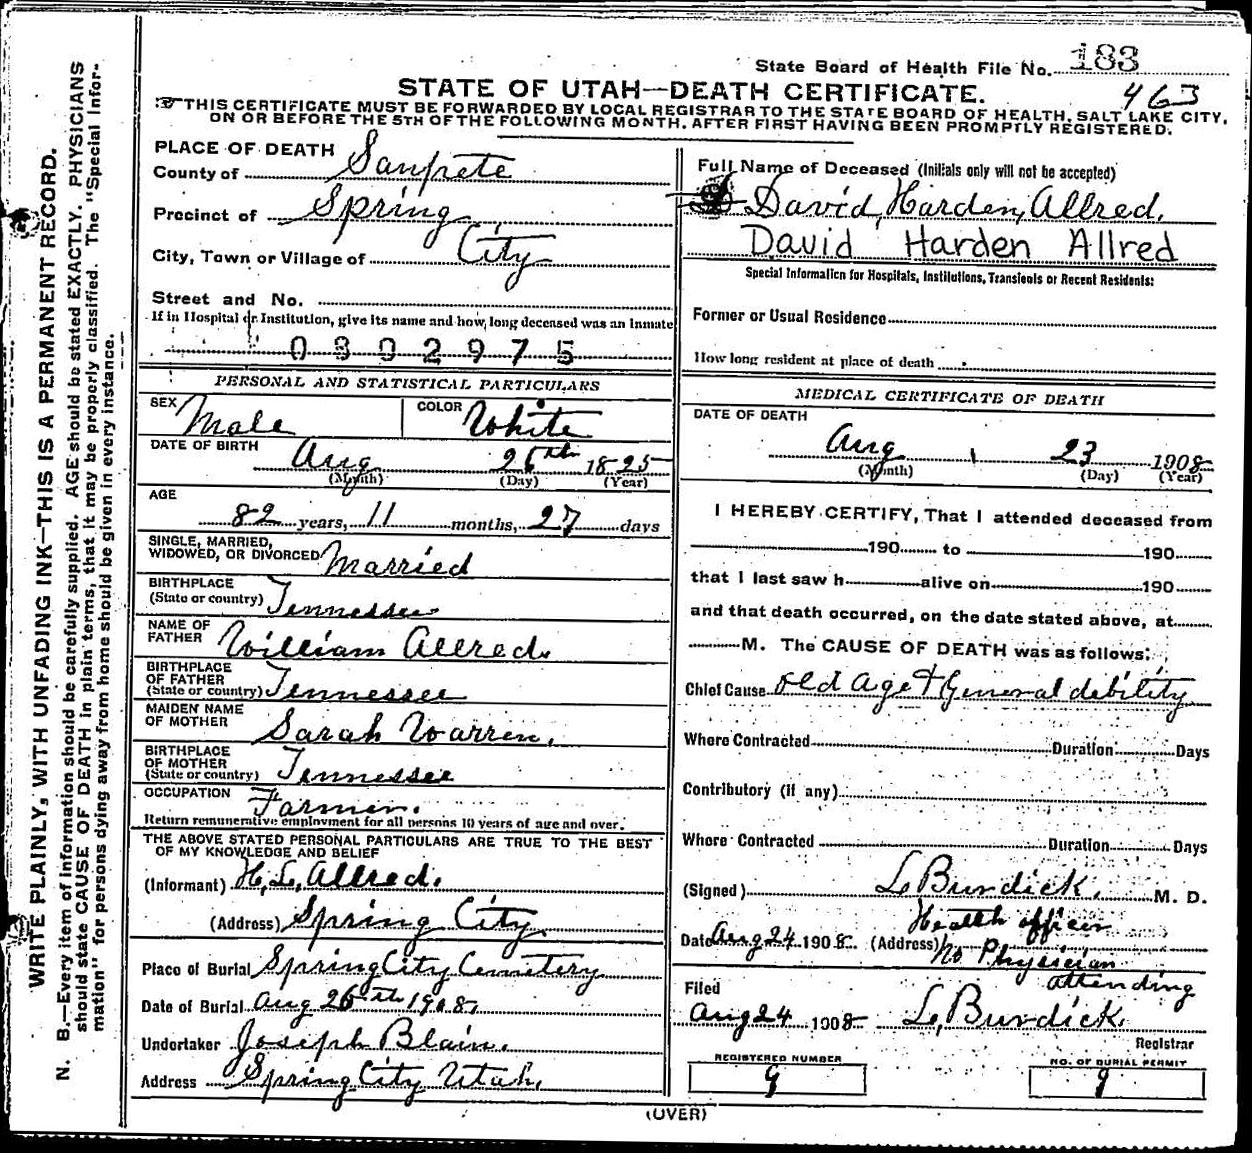 State Board of Health File No. 183
463
STATE OF UTAH—DEATH CERTIFICATE.
THIS CERTIFICATE MUST BE FORWARDED BY LOCAL REGISTRAR TO THE STATE BOARD OF HEALTH, SALT LAKE CITY,
ON OR BEFORE THE 5TH OF THE FOLLOWING MONTH, AFTER FIRST HAVING BEEN PROMPTLY REGISTERED.
WRITE PLAINLY, WITH UNFADING INK—THIS IS A PERMANENT RECORD.
N. B.—Every item of information should be carefully supplied. AGE should be stated EXACTLY. PHYSICIANS
should state CAUSE OF DEATH in plain terms, that it may be properly classified. The "Special Infor-
mation" for persons dying away from home should be given in every instance.
PLACE OF DEATH
County of Sanpete
Precinct of Spring
City, Town or Village of City
Street and No.
If in Hospital or Institution, give its name and how long deceased was an Inmate
0302975
PERSONAL AND STATISTICAL PARTICULARS
SEX Male COLOR White
DATE OF BIRTH Aug 26th 1825
(Month) (Day) (Year)
AGE
82 years, 11 months, 27 days
SINGLE, MARRIED,
WIDOWED, OR DIVORCED Married
BIRTHPLACE
(State or country) Tennessee
NAME OF
FATHER William Allred.
BIRTHPLACE
OF FATHER
(State or country) Tennessee
MAIDEN NAME
OF MOTHER Sarah Warren.
BIRTHPLACE
OF MOTHER
(State or country) Tennessee
OCCUPATION Farmer.
Return remunerative employment for all persons 10 years of age and over.
THE ABOVE STATED PERSONAL PARTICULARS ARE TRUE TO THE BEST
OF MY KNOWLEDGE AND BELIEF
(Informant) H. L. Allred.
(Address) Spring City.
Place of Burial Spring City Cemetery
Date of Burial Aug 26th 1908.
Undertaker Joseph Blain.
Address Spring City Utah.
Full Name of Deceased (Initials only will not be accepted)
David Harden Allred.
David Harden Allred
Special Information for Hospitals, Institutions, Transients or Recent Residents:
Former or Usual Residence
How long resident at place of death
MEDICAL CERTIFICATE OF DEATH
DATE OF DEATH
Aug 23 1908
(Month) (Day) (Year)
I HEREBY CERTIFY, That I attended deceased from
190 to 190
that I last saw h alive on 190
and that death occurred, on the date stated above, at
M. The CAUSE OF DEATH was as follows:
Chief Cause old age & General debility
Where Contracted Duration Days
Contributory (if any)
Where Contracted Duration Days
(Signed) L Burdick. M. D.
Health officer
Date Aug 24 1908 (Address) No Physician
attending
Filed
Aug 24 1908 L. Burdick.
Registrar
REGISTERED NUMBER
9
NO. OF BURIAL PERMIT
9
(OVER)